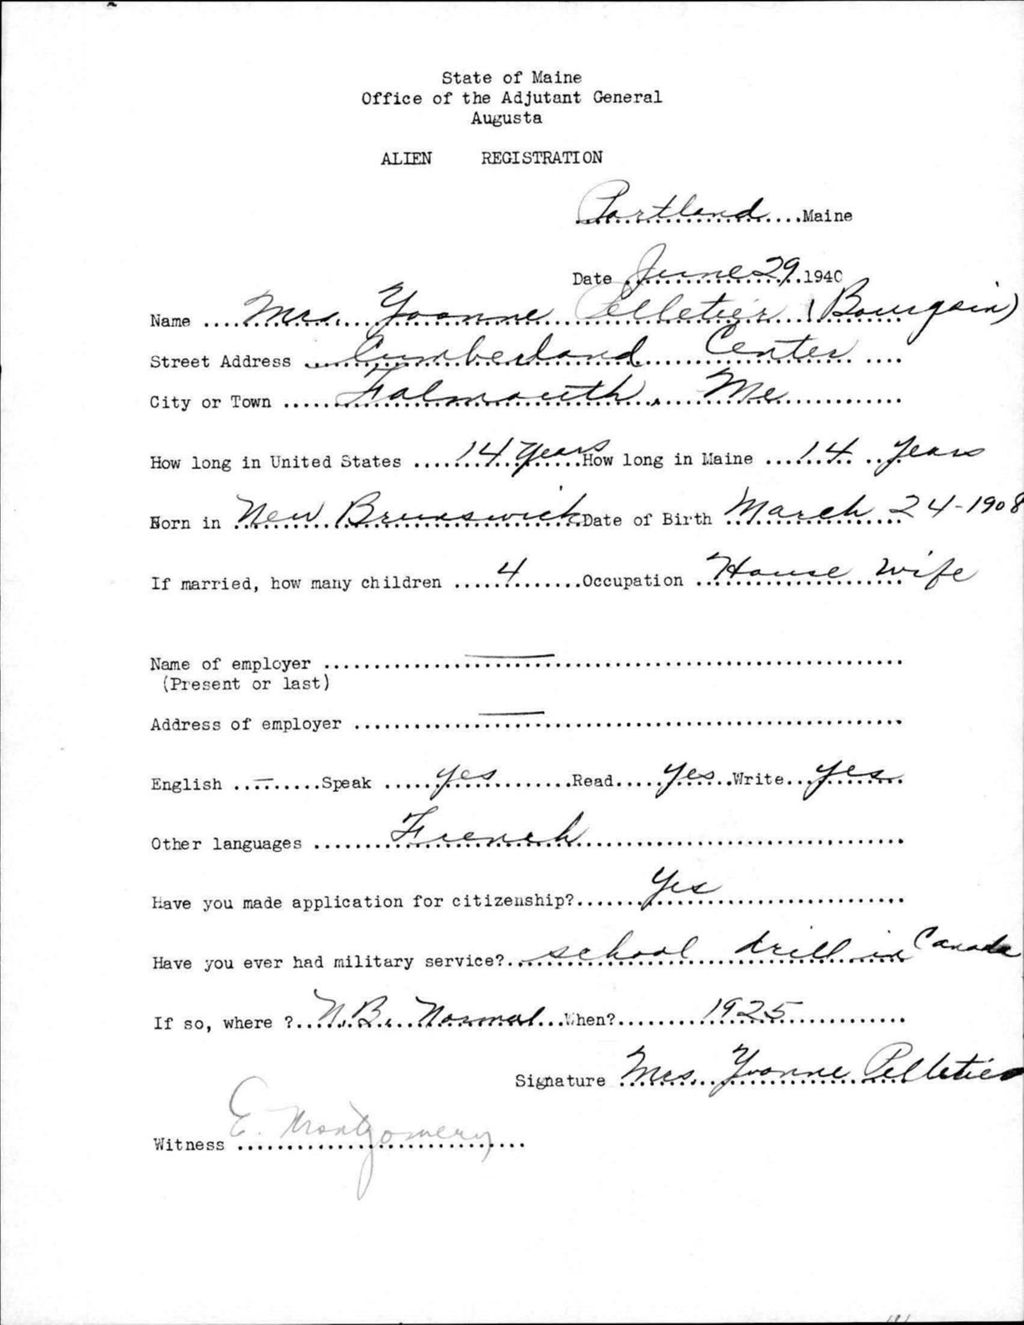 State of Maine
Office of the Adjutant General
Augusta
ALIEN REGISTRATION
Portland....Maine
Date June 29, 1940
Name .... Mrs. Yvonne Pelletier (Bourgoin)
Street Address .. Cumberland Center ....
City or Town ..... Falmouth, Me.
How long in United States .... 14 Years How long in Maine ... 14 years
Born in New Brunswick Date of Birth March 24-1908
If married, how many children .... 4 ....... Occupation .. House wife
Name of employer .... —
(Present or last)
Address of employer .... —
English .. — .....Speak ..... yes .......Read..... yes ..Write... yes
Other languages ....... French
Have you made application for citizenship?...... Yes
Have you ever had military service?.. school drill in Canada
If so, where ?... N.B. Normal ...When?........ 1925
Signature Mrs. Yvonne Pelletier
Witness E. Montgomery